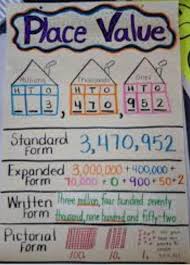 Place Value
Millions Thousands Ones
H T O H T O H T O
3, 4 7 0, 9 5 2
Standard Form 3,470,952
Expanded Form 3,000,000 + 400,000 +
70,000 + 0 + 900 + 50 + 2
Written Form Three million, four hundred seventy
thousand, nine hundred and fifty-two
Pictorial Form
100 10 1